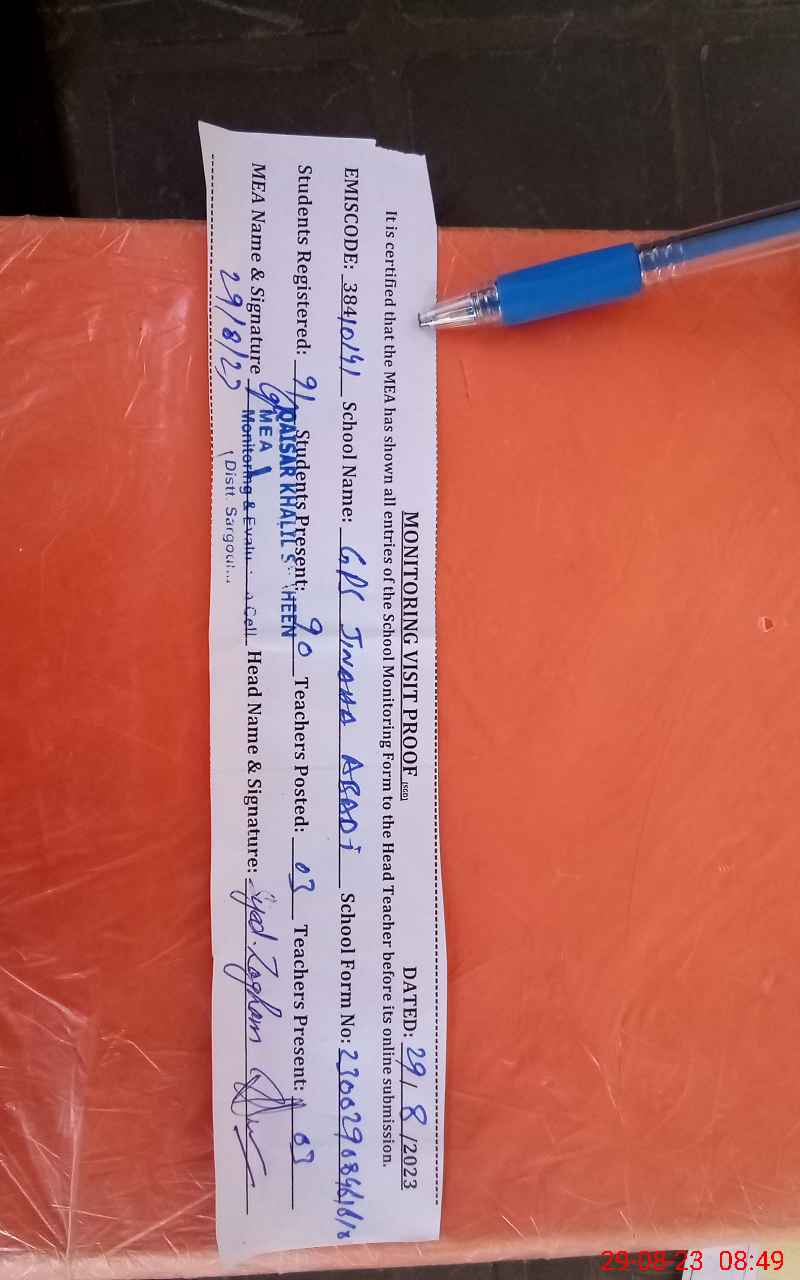 MONITORING VISIT PROOF (SGD) DATED: 29/8/2023
It is certified that the MEA has shown all entries of the School Monitoring Form to the Head Teacher before its online submission.
EMISCODE: 38410141 School Name: GPS JINAHA ABADI School Form No:
Students Registered: 91 Students Present: 90 Teachers Posted: 03 Teachers Present: 03
MEA Name & Signature Head Name & Signature: Syed Zagham
29/8/23
QAISAR KHALIL
MEA
Monitoring & Cell
Distt.
29-08-23 08:49